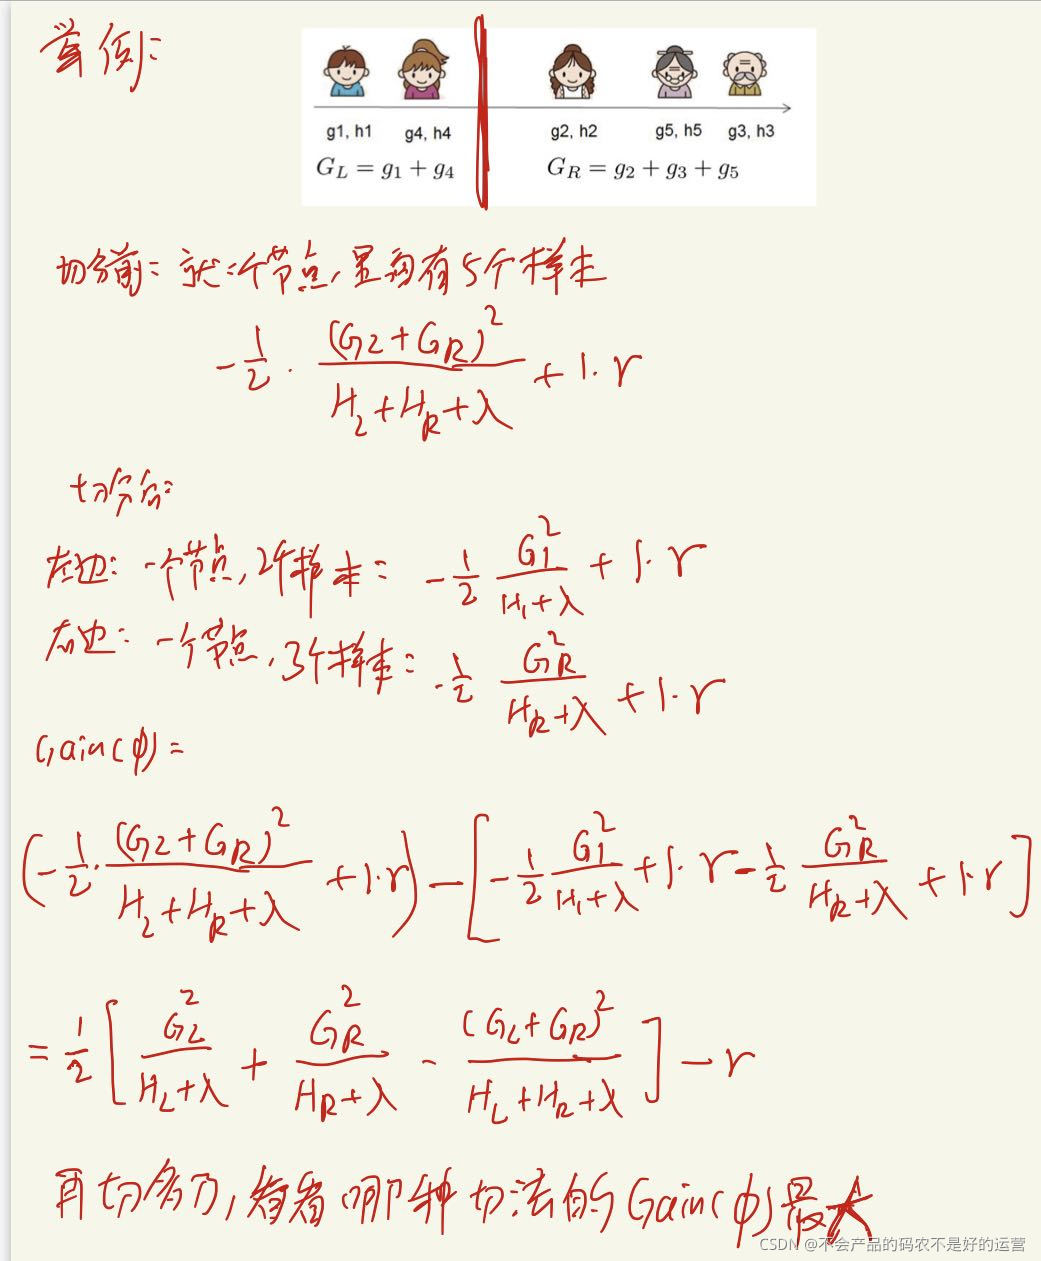 举例:
g1, h1 g4, h4 g2, h2 g5, h5 g3, h3
G_L = g_1 + g_4 G_R = g_2 + g_3 + g_5
切分前: 就一个节点, 里面有5个样本
-1/2 · (G_L+G_R)^2/(H_L+H_R+λ) + 1·r
切分后:
左边: 一个节点, 2个样本: -1/2 G_L^2/(H_L+λ) + 1·r
右边: 一个节点, 3个样本: -1/2 G_R^2/(H_R+λ) + 1·r
Gain(φ) =
(-1/2 · (G_L+G_R)^2/(H_L+H_R+λ) + 1·r) - [-1/2 G_L^2/(H_L+λ) + 1·r - 1/2 G_R^2/(H_R+λ) + 1·r]
= 1/2 [G_L^2/(H_L+λ) + G_R^2/(H_R+λ) - (G_L+G_R)^2/(H_L+H_R+λ)] - r
再切多刀, 看看哪种切法的Gain(φ)最大
CSDN @不会产品的码农不是好的运营